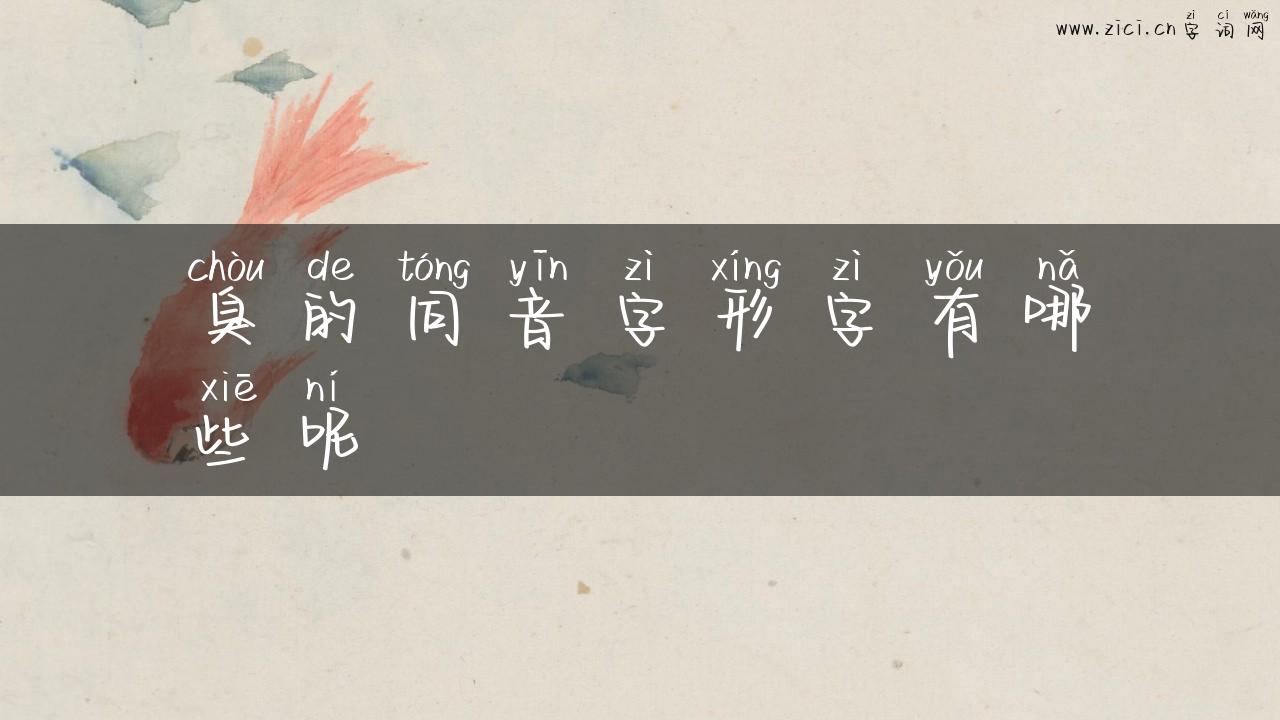 zì cí wǎng
www.zici.cn 字词网
chòu de tóng yīn zì xíng zì yǒu nǎ
臭的同音字形字有哪
xiē ní
些呢